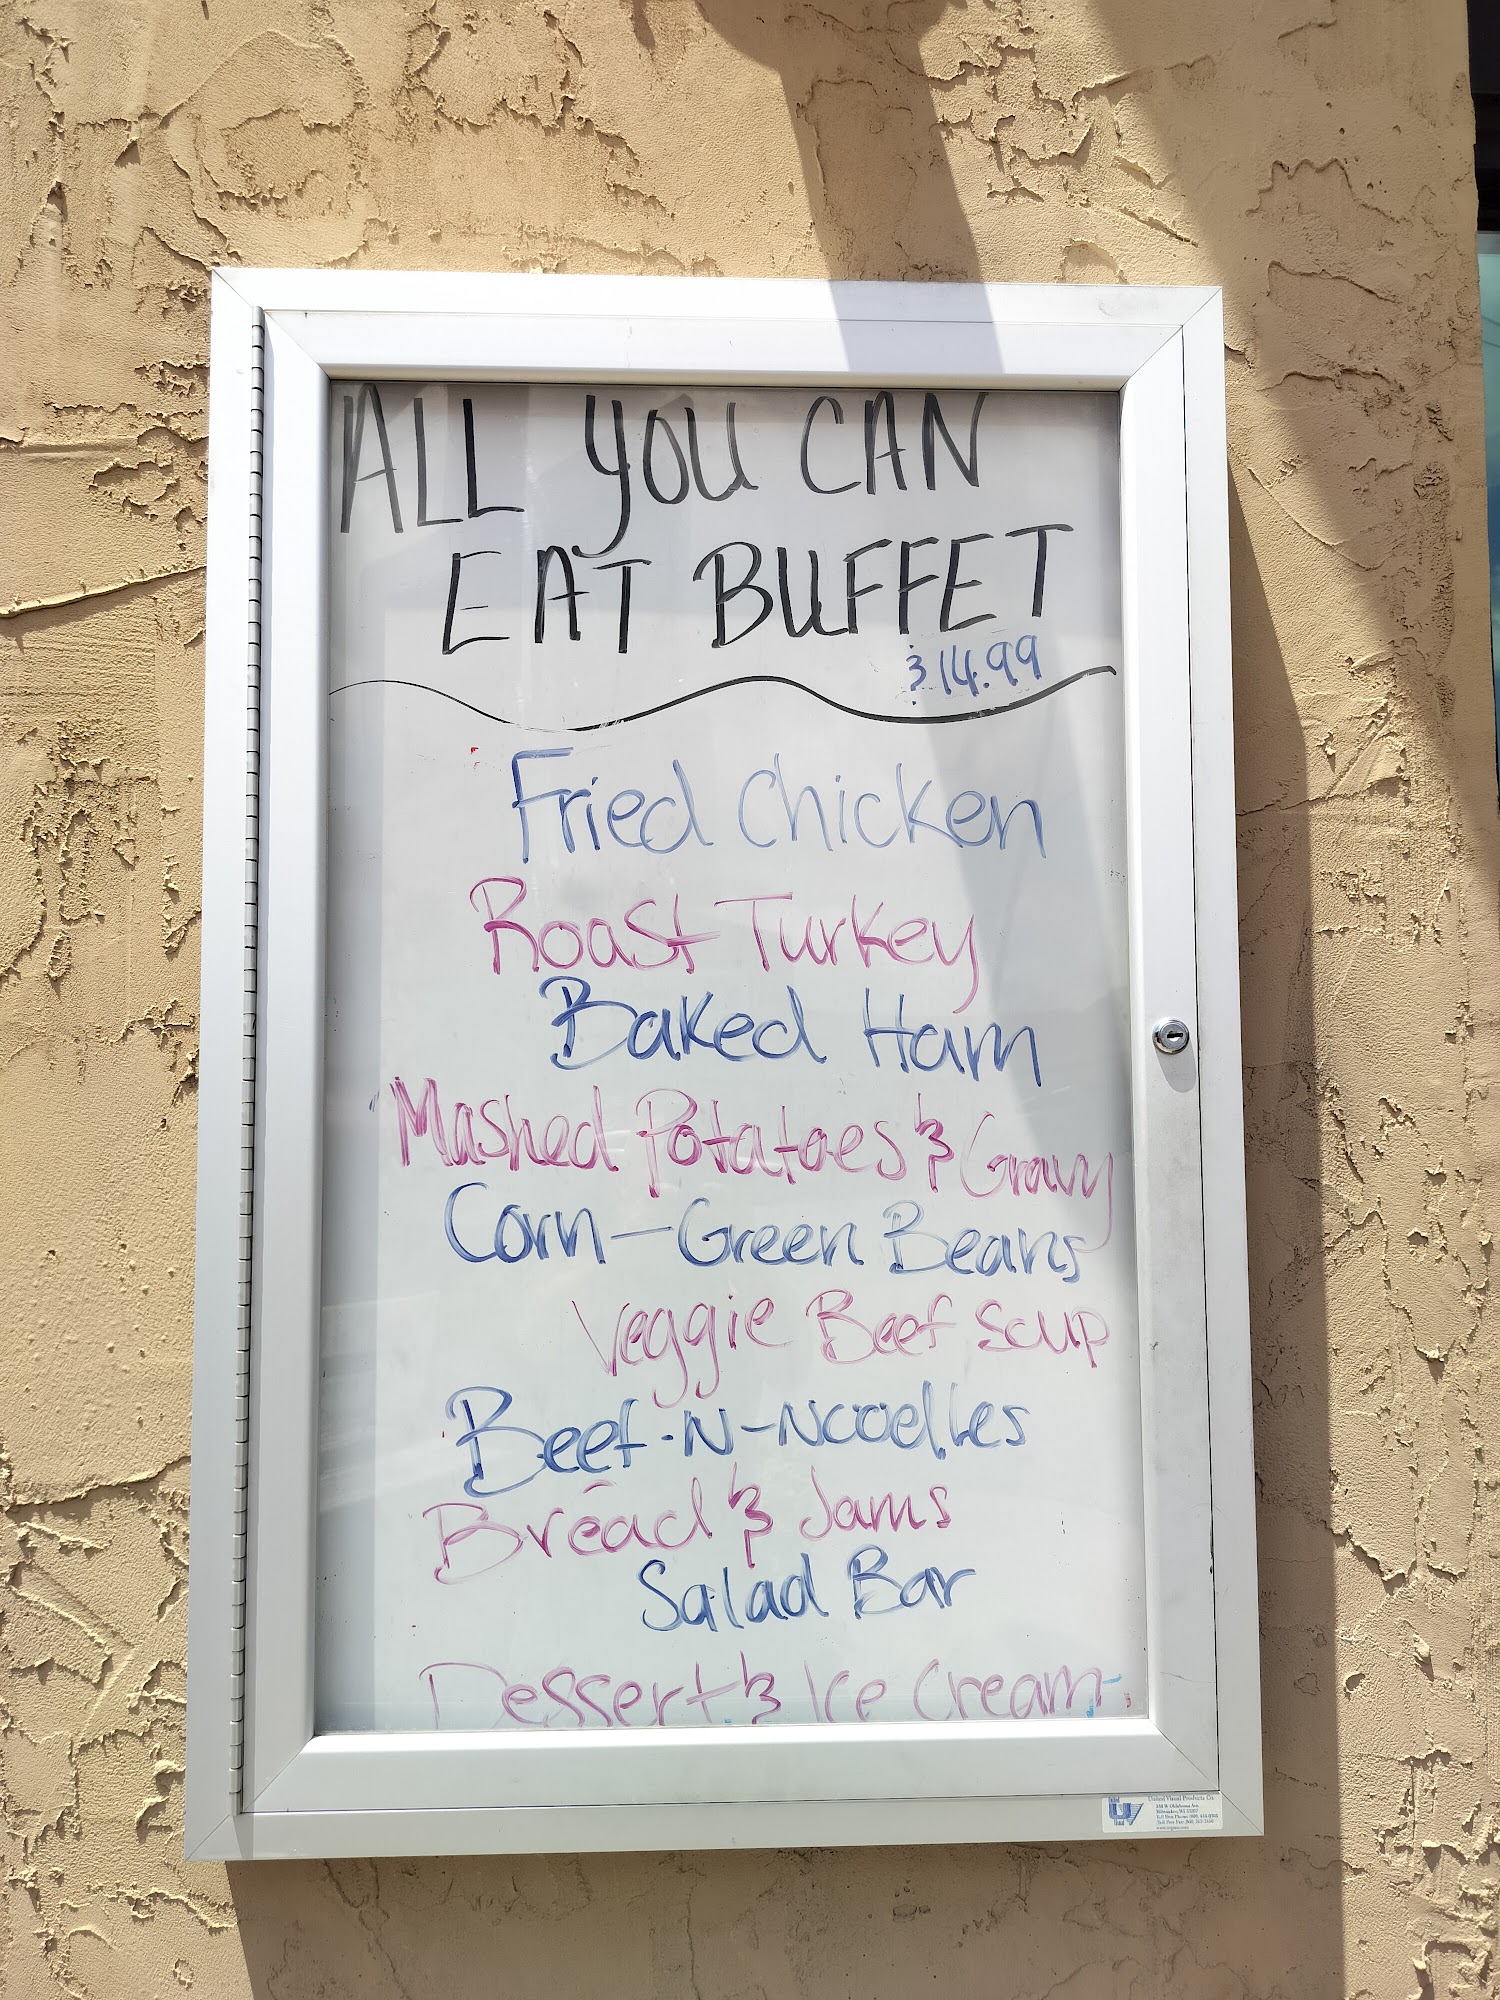 ALL YOU CAN
EAT BUFFET
$14.99
Fried Chicken
Roast Turkey
Baked Ham
Mashed Potatoes & Gravy
Corn - Green Beans
Veggie Beef Soup
Beef-N-Noodles
Bread & Jams
Salad Bar
Dessert & Ice Cream
United Visual Products Co.